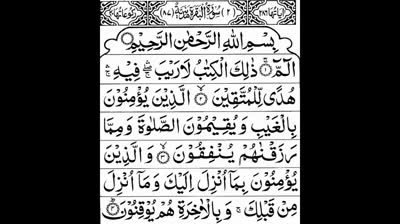 اٰيَاتُهَا ٢٨٦ (٢) سُوْرَةُ الْبَقَرَةِ مَدَنِيَّةٌ (٨٧) رُكُوْعَاتُهَا ٤٠
بِسْمِ اللّٰهِ الرَّحْمٰنِ الرَّحِيْمِ
الٓمّٓ ۝١ ذٰلِكَ الْكِتٰبُ لَا رَيْبَ ۛ فِيْهِ ۛ
هُدًى لِّلْمُتَّقِيْنَ ۝٢ الَّذِيْنَ يُؤْمِنُوْنَ
بِالْغَيْبِ وَيُقِيْمُوْنَ الصَّلٰوةَ وَمِمَّا
رَزَقْنٰهُمْ يُنْفِقُوْنَ ۝٣ وَالَّذِيْنَ
يُؤْمِنُوْنَ بِمَآ اُنْزِلَ اِلَيْكَ وَمَآ اُنْزِلَ
مِنْ قَبْلِكَ ۚ وَبِالْاٰخِرَةِ هُمْ يُوْقِنُوْنَ ۝٤